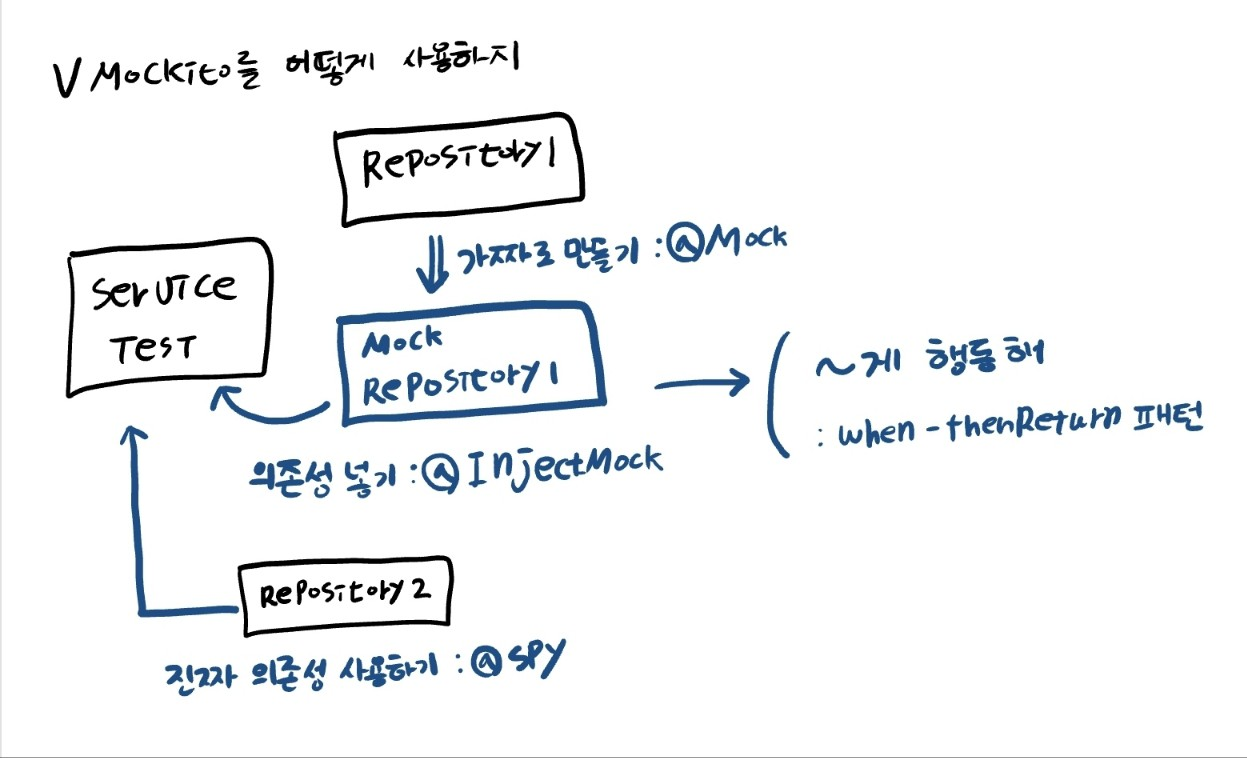 V Mockito를 어떻게 사용하지
Repository1
가짜로 만들기 : @Mock
Service
Test
Mock
Repository1
~게 행동해
: when - thenReturn 패턴
의존성 넣기 : @InjectMock
Repository 2
진짜 의존성 사용하기 : @spy